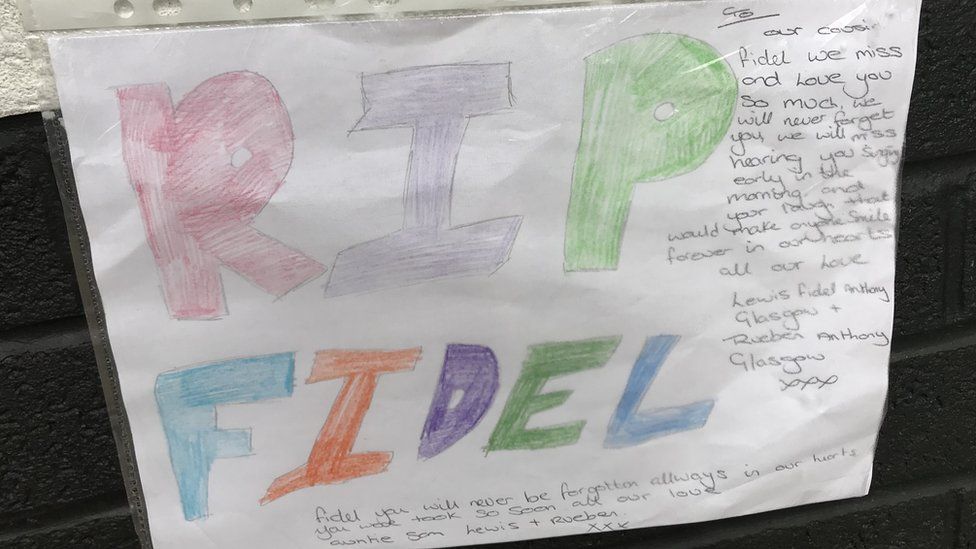 RIP
FIDEL
To
our cousi
fidel we miss
and Love you
so much, we
will never forget
you, we will miss
hearing you Singing
early in the
morning and
your laugh that
would make anyone Smile
forever in our hearts
all our Love
Lewis Fidel Anthony
Glasgow +
Rueben Anthony
Glasgow
xxxx
Fidel you will never be forgotton allways in our hearts
you were took so soon all our love
auntie Sam Lewis + Rueben.
xxx